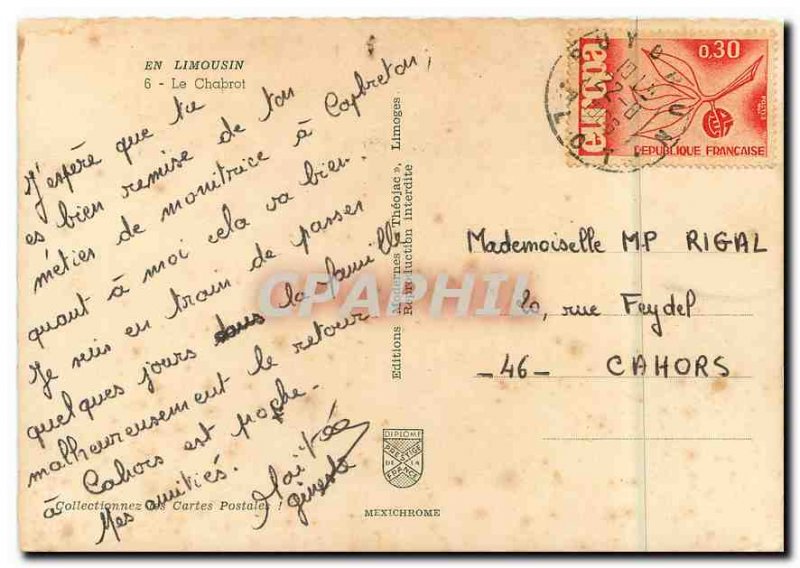 EN LIMOUSIN
6 - Le Chabrot
J'espère que tu
es bien remise de ton
métier de monitrice à Capbreton,
quant à moi cela va bien.
Je suis en train de passer
quelques jours dans la famille
malheureusement le retour
à Cahors est proche.
Mes amitiés.
Collectionnez les Cartes Postales !
Editions Modernes « Théojac », Limoges
Reproduction interdite
DIPLOME
PRESTIGE
DE LA
FRANCE
MEXICHROME
europa
0,30
REPUBLIQUE FRANÇAISE
Mademoiselle MP RIGAL
20, rue Feydel
-46- CAHORS
CPAPHIL